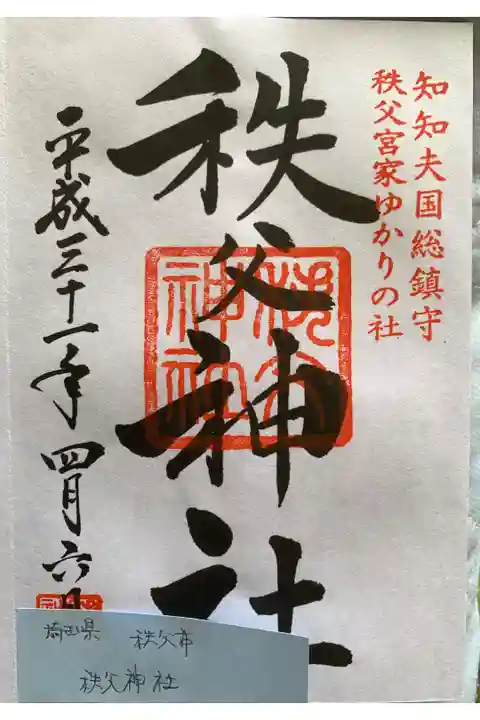 知知夫国総鎮守
秩父宮家ゆかりの社
秩父神社
秩父神社
平成三十一年四月六日
埼玉県 秩父市
秩父神社